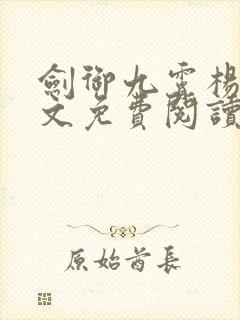 劍御九霄楊
文免費閱讀
原始酋長